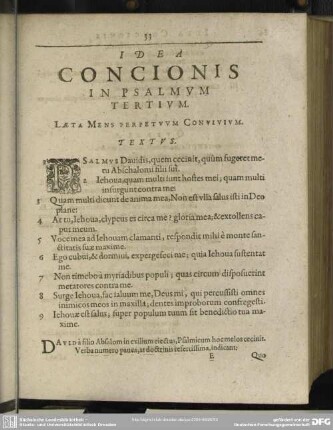 33
IDEA
CONCIONIS
IN PSALMVM
TERTIVM.
LÆTA MENS PERPETVVM CONVIVIVM.
TEXTVS.
PSALMVS Dauidis, quem cecinit, quùm fugeret me-
tu Abschalomi filii sui.
2 Iehoua quam multi sunt hostes mei, quam multi
insurgunt contra me:
3 Quam multi dicunt de anima mea, Non est vlla salus isti in Deo
planè:
4 At tu, Iehoua, clypeus es circa me: gloria mea; & extollens ca-
put meum.
5 Voce mea ad Iehouam clamanti, respondit mihi è monte san-
ctitatis suæ maximè.
6 Ego cubui, & dormiui, expergefeci me; quia Iehoua sustentat
me.
7 Non timebo à myriadibus populi; quas circum disposuerint
metatores contra me.
8 Surge Iehoua, fac saluum me, Deus mi, qui percussisti omnes
inimicos meos in maxilla, dentes improborum confregisti.
9 Iehouæ est salus; super populum tuum sit benedictio tua ma-
xime.
DAVID à filio Absolom in exilium eiectus, Psalmicum hoc melos cecinit.
Verba numero pauca, at doctrinis refertissima, indicant:
E Quo